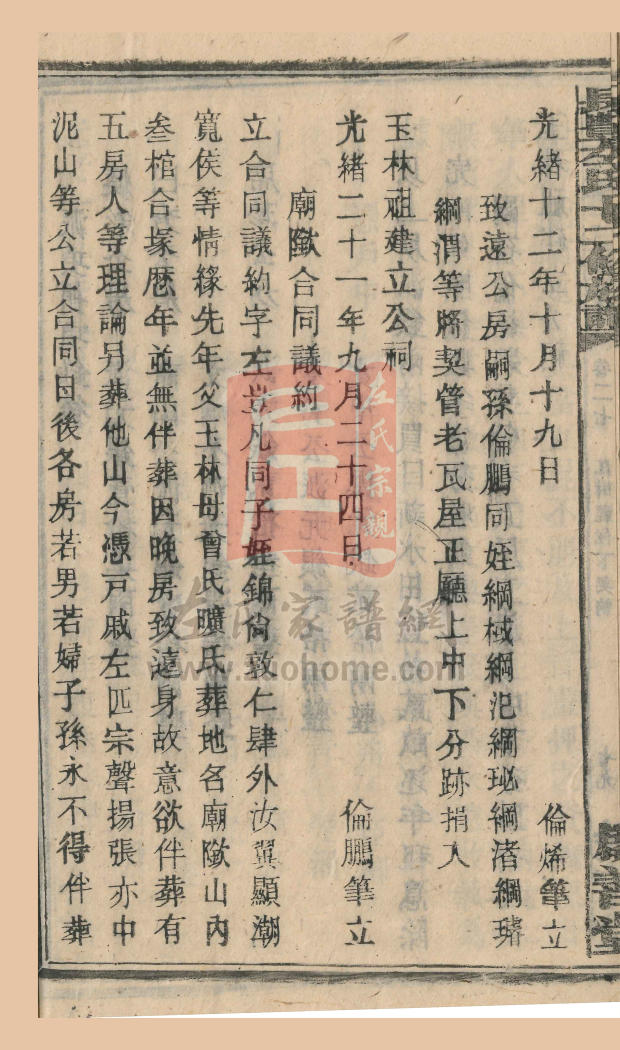 光緒十二年十月十九日 倫烯筆立
致遠公房嗣孫倫鵬同姪綱棫綱汜綱珌綱渚綱璿
綱渭等將契管老瓦屋正廳上中下分跡捐入
玉林祖建立公祠
光緒二十一年九月二十四日 倫鵬筆立
廟隞合同議約
立合同議約字左豈凡同子姪錦倘敦仁肆外汝翼顯潮
寬侯等情緣先年父玉林母曾氏曠氏葬地名廟隞山內
叁棺合塚歷年並無伴葬因晚房致遠身故意欲伴葬有
五房人等理論另葬他山今憑戸戚左匹宗聲揚張亦中
泥山等公立合同日後各房若男若婦子孫永不得伴葬
卷二七
左氏宗親
左氏家譜網
www.zuohome.com